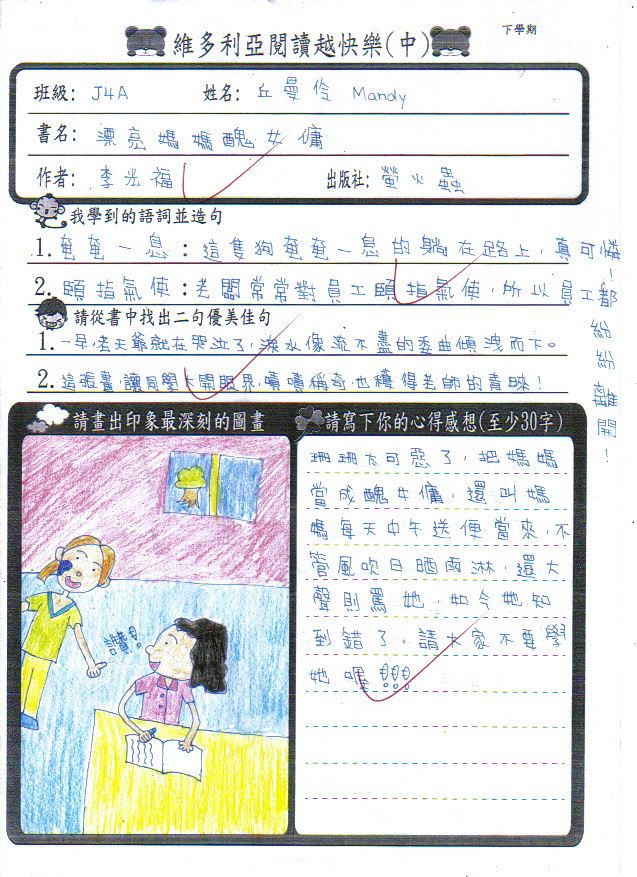 下學期
維多利亞閱讀越快樂(中)
班級: J4A 姓名: 丘曼伶 Mandy
書名: 漂亮媽媽醜女傭
作者: 李光福 出版社: 螢火蟲
我學到的語詞並造句
1. 奄奄一息:這隻狗奄奄一息的躺在路上,真可憐!
2. 頤指氣使:老闆常常對員工頤指氣使,所以員工都紛紛離開!
請從書中找出二句優美佳句
1. 一早,老天爺就在哭泣了,淚水像流不盡的委曲傾洩而下。
2. 這張畫,讓同學大開眼界,嘖嘖稱奇也穫得老師的青睞!
請畫出印象最深刻的圖畫
讚!
請寫下你的心得感想(至少30字)
珊珊太可惡了,把媽媽
當成醜女傭,還叫媽
媽每天中午送便當來,不
管風吹日晒雨淋,還大
聲則罵她,如今她知
到錯了,請大家不要學
她喔!!!